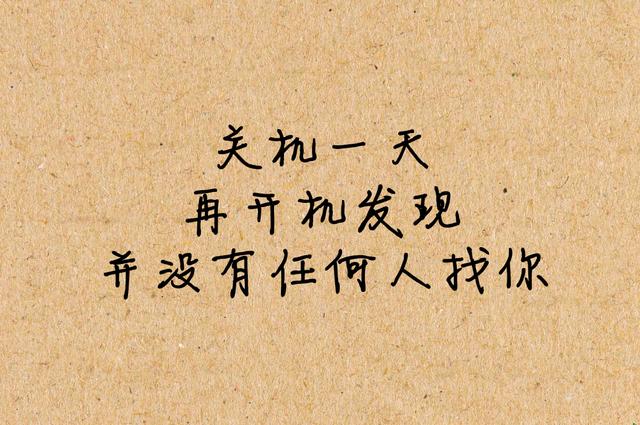 关机一天
再开机发现
并没有任何人找你